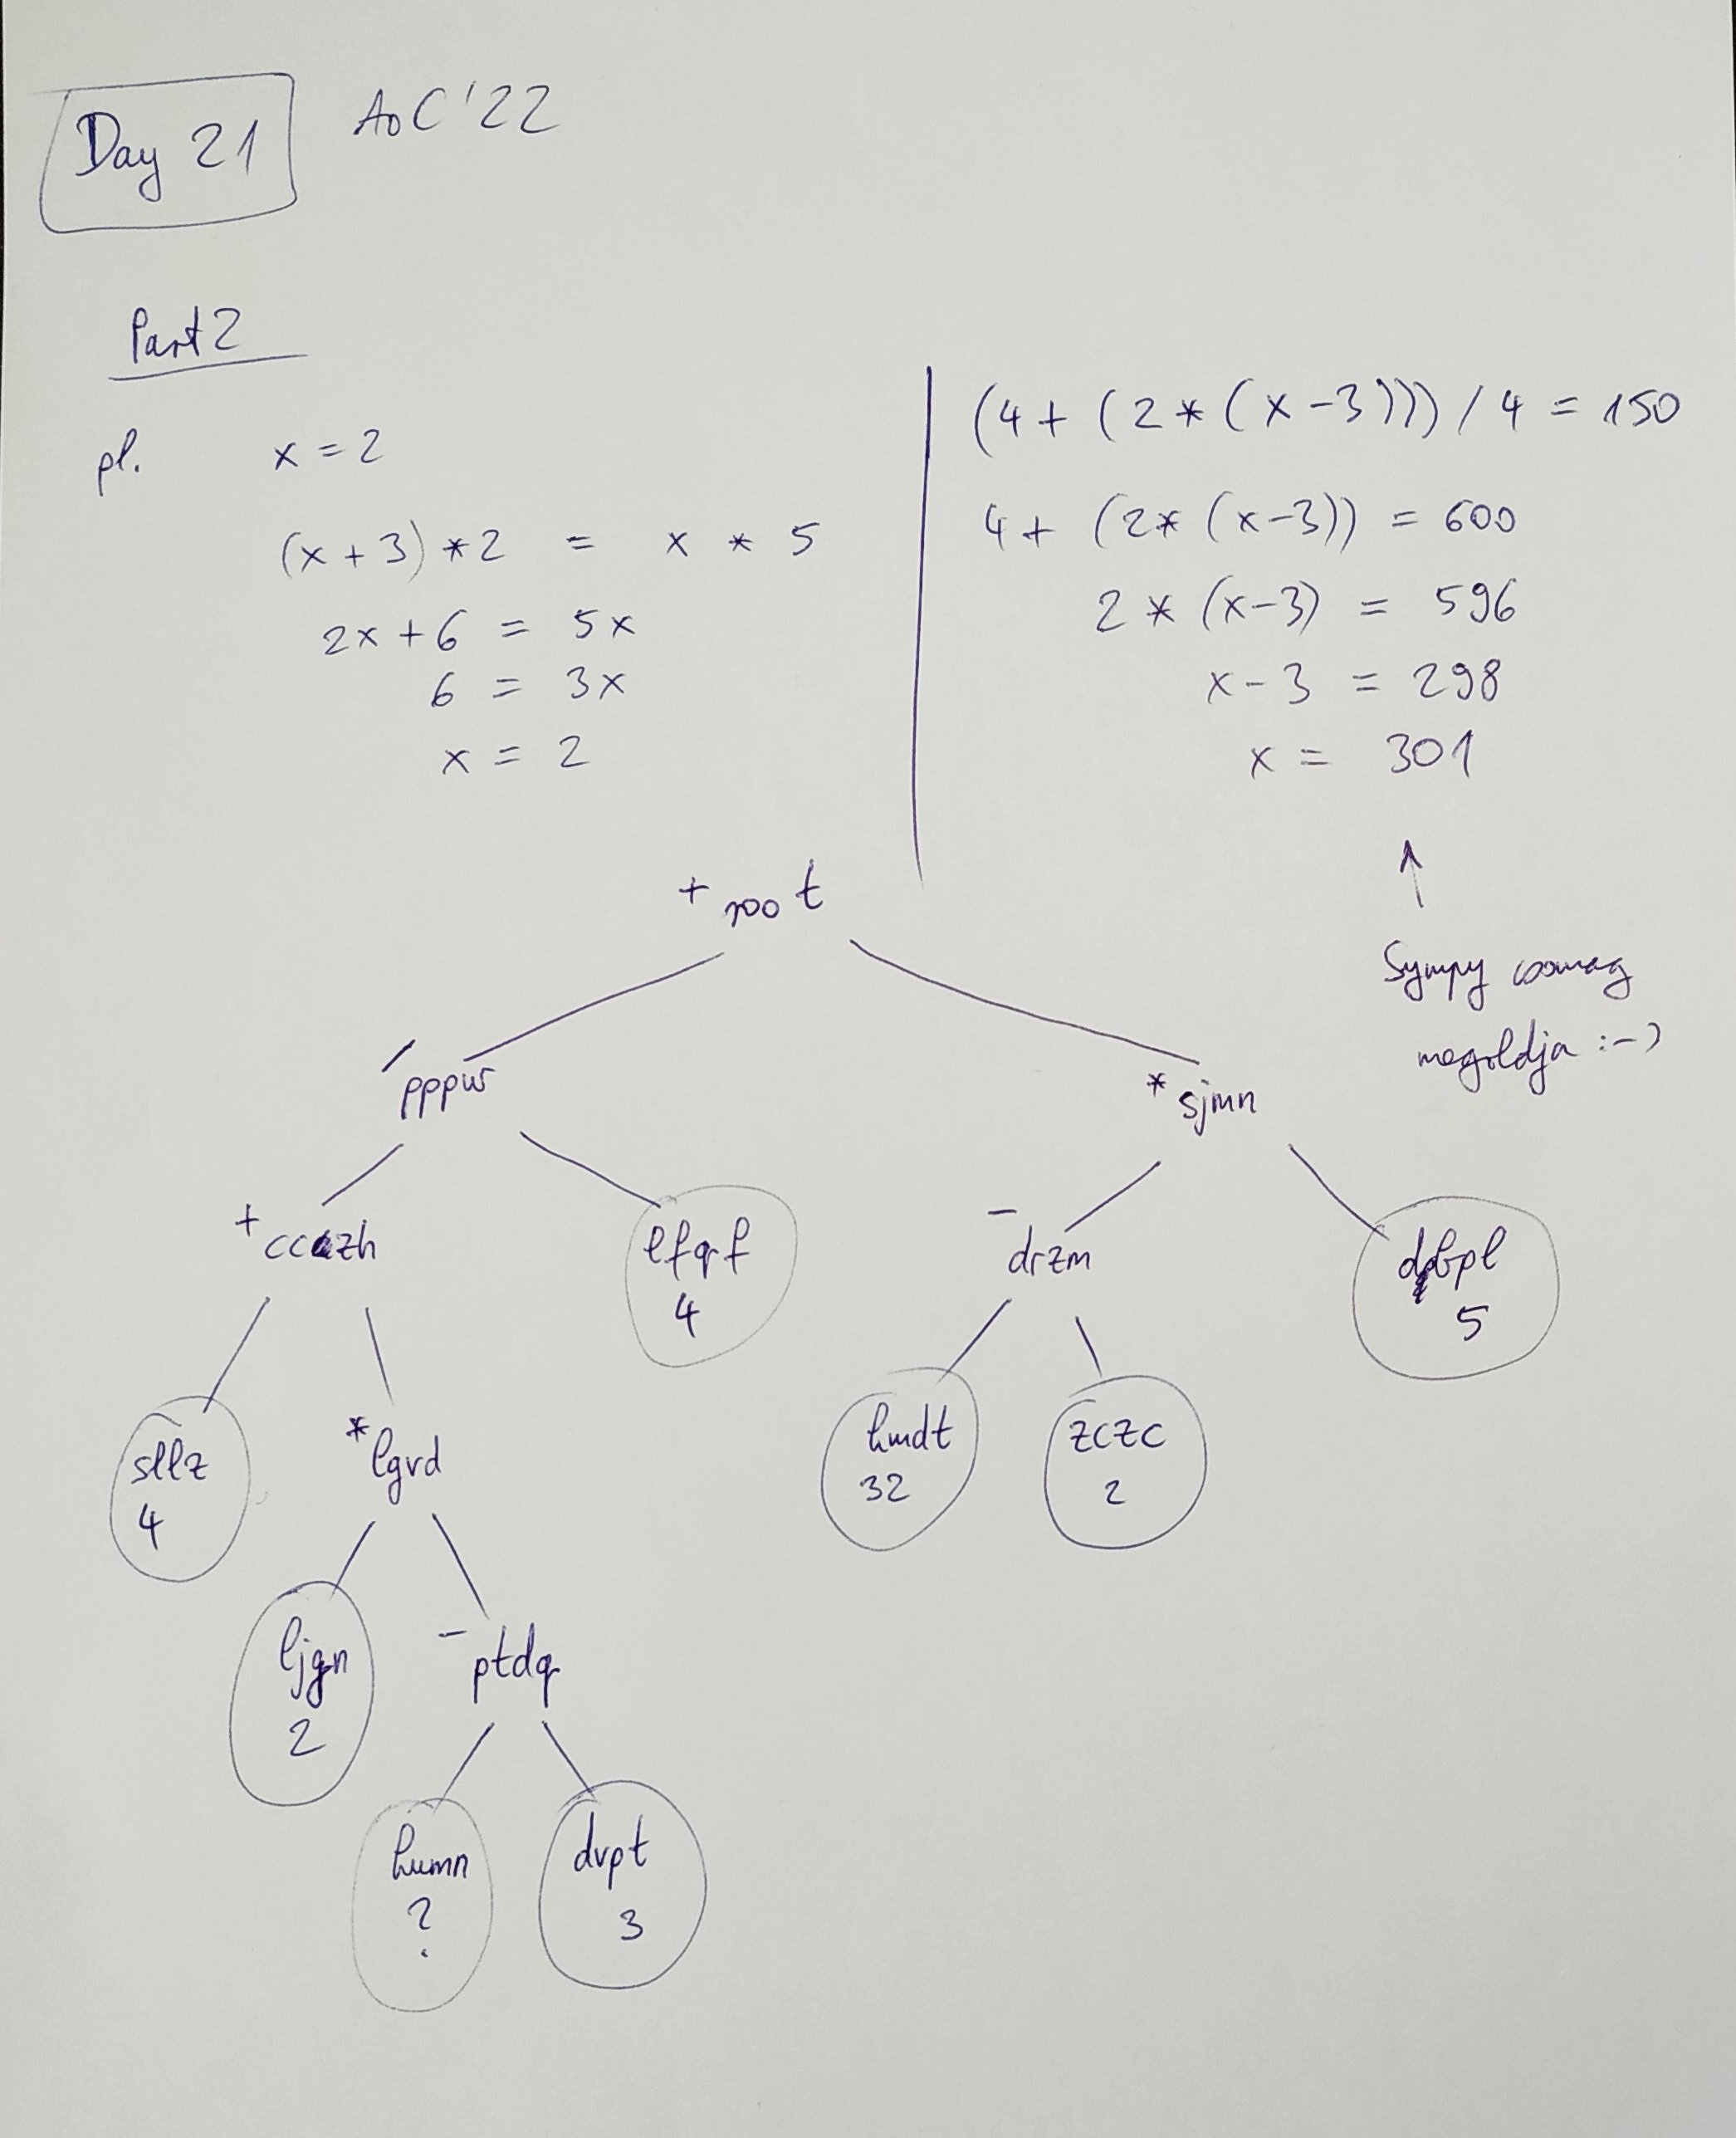 Day 21
AoC'22
Part 2
pl. x = 2
(x + 3) * 2 = x * 5
2x + 6 = 5x
6 = 3x
x = 2
(4 + (2 * (x - 3))) / 4 = 150
4 + (2 * (x - 3)) = 600
2 * (x - 3) = 596
x - 3 = 298
x = 301
↑
Sympy csomag
megoldja :-)
+ root
/ pppw
* sjmn
+ cczh
lfqf
4
- drzm
dbpl
5
sllz
4
* lgvd
hmdt
32
zczc
2
ljgn
2
- ptdq
humn
?
dvpt
3